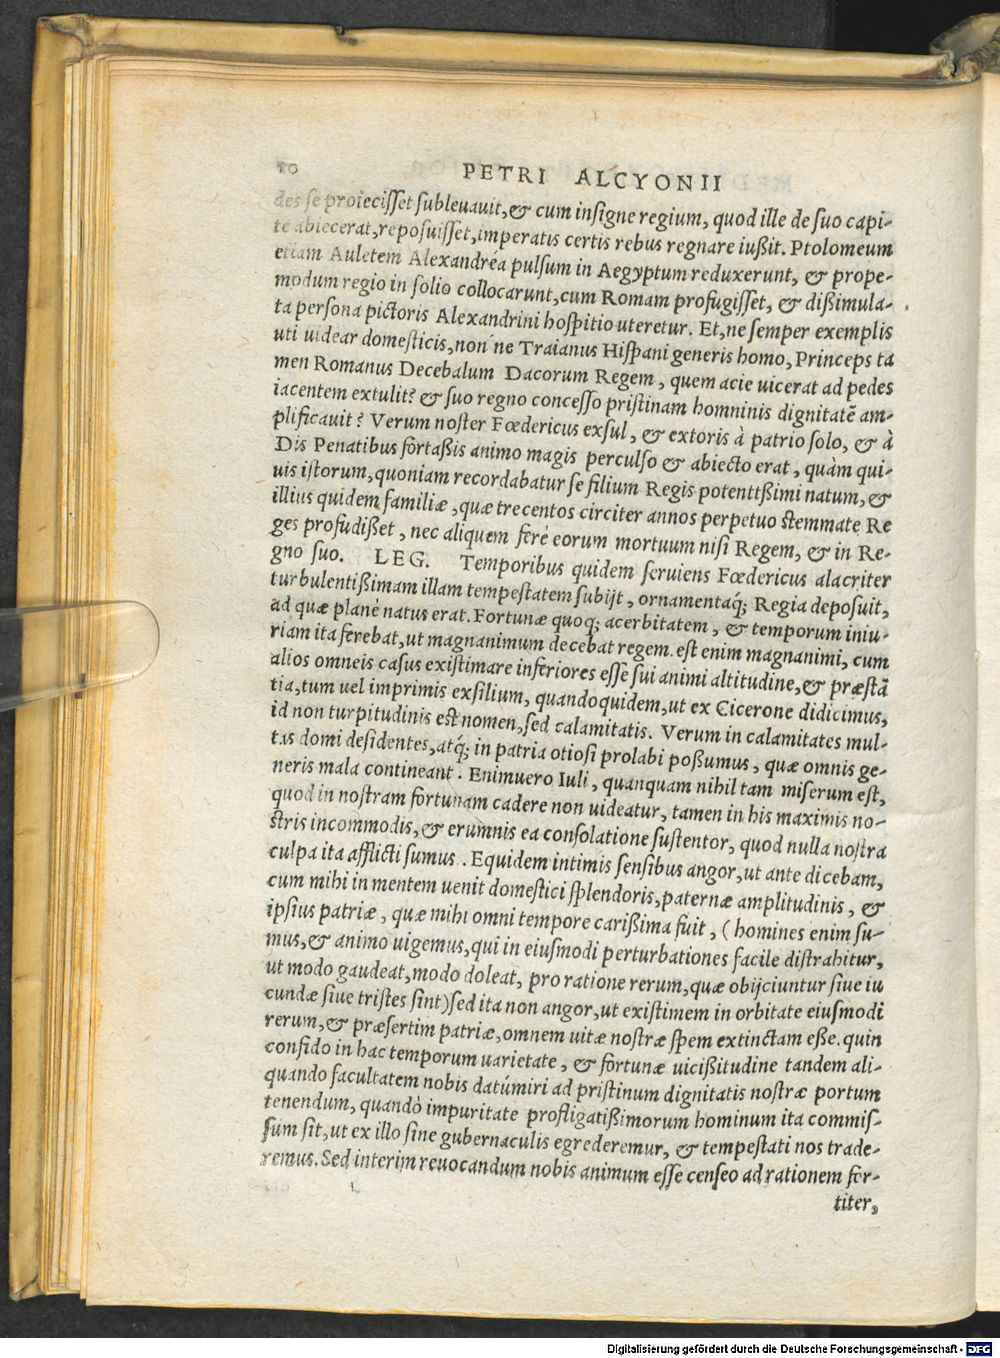 10
PETRI ALCYONII
des se proiecisset subleuauit, & cum insigne regium, quod ille de suo capi-
te abiecerat, reposuisset, imperatis certis rebus regnare iußit. Ptolomeum
etiam Auletem Alexandréa pulsum in Aegyptum reduxerunt, & prope-
modum regio in solio collocarunt, cum Romam profugisset, & dißimula-
ta persona pictoris Alexandrini hospitio uteretur. Et, ne semper exemplis
uti uidear domesticis, non ne Traianus Hispani generis homo, Princeps ta
men Romanus Decebalum Dacorum Regem, quem acie uicerat ad pedes
iacentem extulit? & suo regno concesso pristinam homninis dignitatē am-
plificauit? Verum noster Fœdericus exsul, & extoris à patrio solo, & à
Dis Penatibus fortaßis animo magis perculso & abiecto erat, quàm qui-
uis istorum, quoniam recordabatur se filium Regis potenttßimi natum, &
illius quidem familiæ, quæ trecentos circiter annos perpetuo stemmate Re
ges profudißet, nec aliquem ferè eorum mortuum nisi Regem, & in Re-
gno suo. LEG. Temporibus quidem seruiens Fœdericus alacriter
turbulentißimam illam tempestatem subijt, ornamentaq́; Regia deposuit,
ad quæ planè natus erat. Fortunæ quoq; acerbitatem, & temporum iniu-
riam ita ferebat, ut magnanimum decebat regem. est enim magnanimi, cum
alios omneis casus existimare inferiores esse sui animi altitudine, & præstā
tia, tum uel imprimis exsilium, quandoquidem, ut ex Cicerone didicimus,
id non turpitudinis est nomen, sed calamitatis. Verum in calamitates mul-
tas domi desidentes, atq́; in patria otiosi prolabi poßumus, quæ omnis ge-
neris mala contineant. Enimuero Iuli, quanquam nihil tam miserum est,
quod in nostram fortunam cadere non uideatur, tamen in his maximis no-
stris incommodis, & erumnis ea consolatione sustentor, quod nulla nostra
culpa ita afflicti sumus. Equidem intimis sensibus angor, ut ante dicebam,
cum mihi in mentem uenit domestici splendoris, paternæ amplitudinis, &
ipsius patriæ, quæ mihi omni tempore carißima fuit, (homines enim su-
mus, & animo uigemus, qui in eiusmodi perturbationes facile distrahitur,
ut modo gaudeat, modo doleat, pro ratione rerum, quæ obijciuntur siue iu
cundæ siue tristes sint) sed ita non angor, ut existimem in orbitate eiusmodi
rerum, & præsertim patriæ, omnem uitæ nostræ spem extinctam eße. quin
confido in hac temporum uarietate, & fortunæ uicißitudine tandem ali-
quando facultatem nobis datúmiri ad pristinum dignitatis nostræ portum
tenendum, quandò impuritate profligatißimorum hominum ita commis-
sum sit, ut ex illo sine gubernaculis egrederemur, & tempestati nos trade-
remus. Sed interim reuocandum nobis animum esse censeo ad rationem for-
titer,
Digitalisierung gefördert durch die Deutsche Forschungsgemeinschaft - DFG